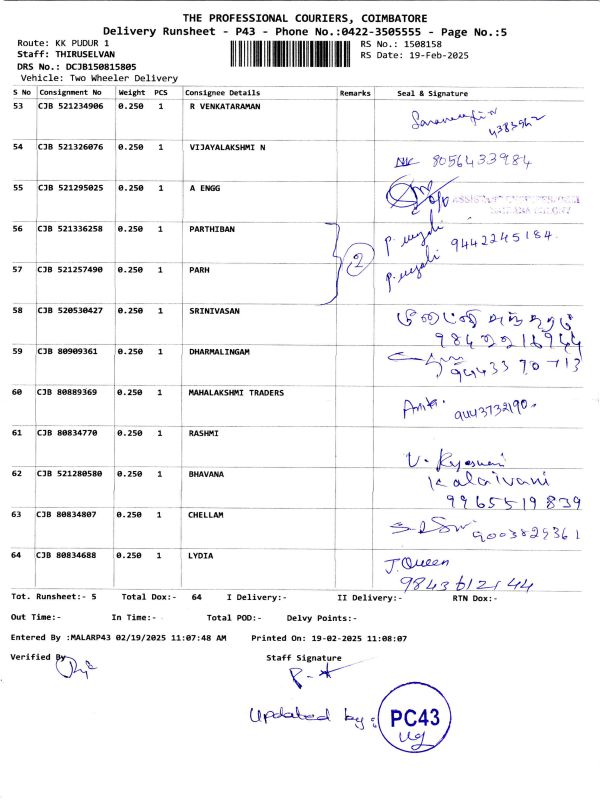 THE PROFESSIONAL COURIERS, COIMBATORE
Delivery Runsheet - P43 - Phone No.:0422-3505555 - Page No.:5
Route: KK PUDUR 1
RS No.: 1508158
Staff: THIRUSELVAN
RS Date: 19-Feb-2025
DRS No.: DCJB150815805
Vehicle: Two Wheeler Delivery
S No Consignment No Weight PCS Consignee Details Remarks Seal & Signature
53 CJB 521234906 0.250 1 R VENKATARAMAN
54 CJB 521326076 0.250 1 VIJAYALAKSHMI N 8056433984
55 CJB 521295025 0.250 1 A ENGG
56 CJB 521336258 0.250 1 PARTHIBAN 9442245184
2
57 CJB 521257490 0.250 1 PARH
58 CJB 520530427 0.250 1 SRINIVASAN
59 CJB 80909361 0.250 1 DHARMALINGAM
60 CJB 80889369 0.250 1 MAHALAKSHMI TRADERS
61 CJB 80834770 0.250 1 RASHMI
62 CJB 521280580 0.250 1 BHAVANA Kalaivani
9965519839
63 CJB 80834807 0.250 1 CHELLAM 9003829361
64 CJB 80834688 0.250 1 LYDIA J. Queen
9843612144
Tot. Runsheet:- 5 Total Dox:- 64 I Delivery:- II Delivery:- RTN Dox:-
Out Time:- In Time:- Total POD:- Delvy Points:-
Entered By :MALARP43 02/19/2025 11:07:48 AM Printed On: 19-02-2025 11:08:07
Verified By Staff Signature
Updated by: PC43